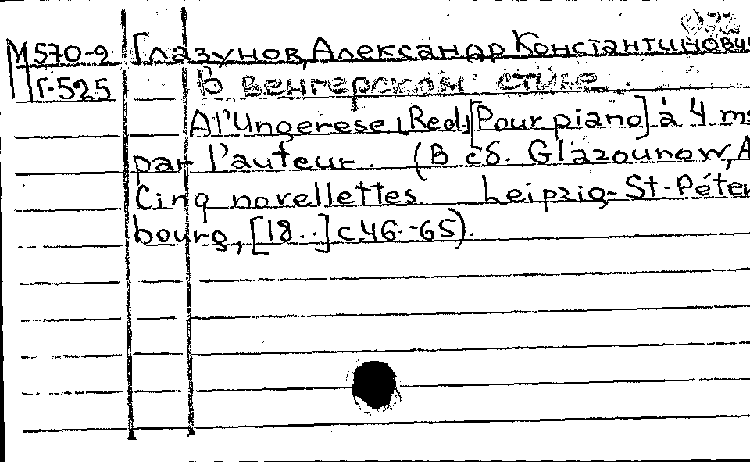 М570-2 Глазунов, Александр Константинови
Г-525 В венгерском стиле.
A l'Ungerese, Red. [Pour piano] à 4 ms
par l'auteur. (В сб. Glazounow, A
Cinq novellettes. Leipzig-St-Péter
bourg, [18..] с.46-65).